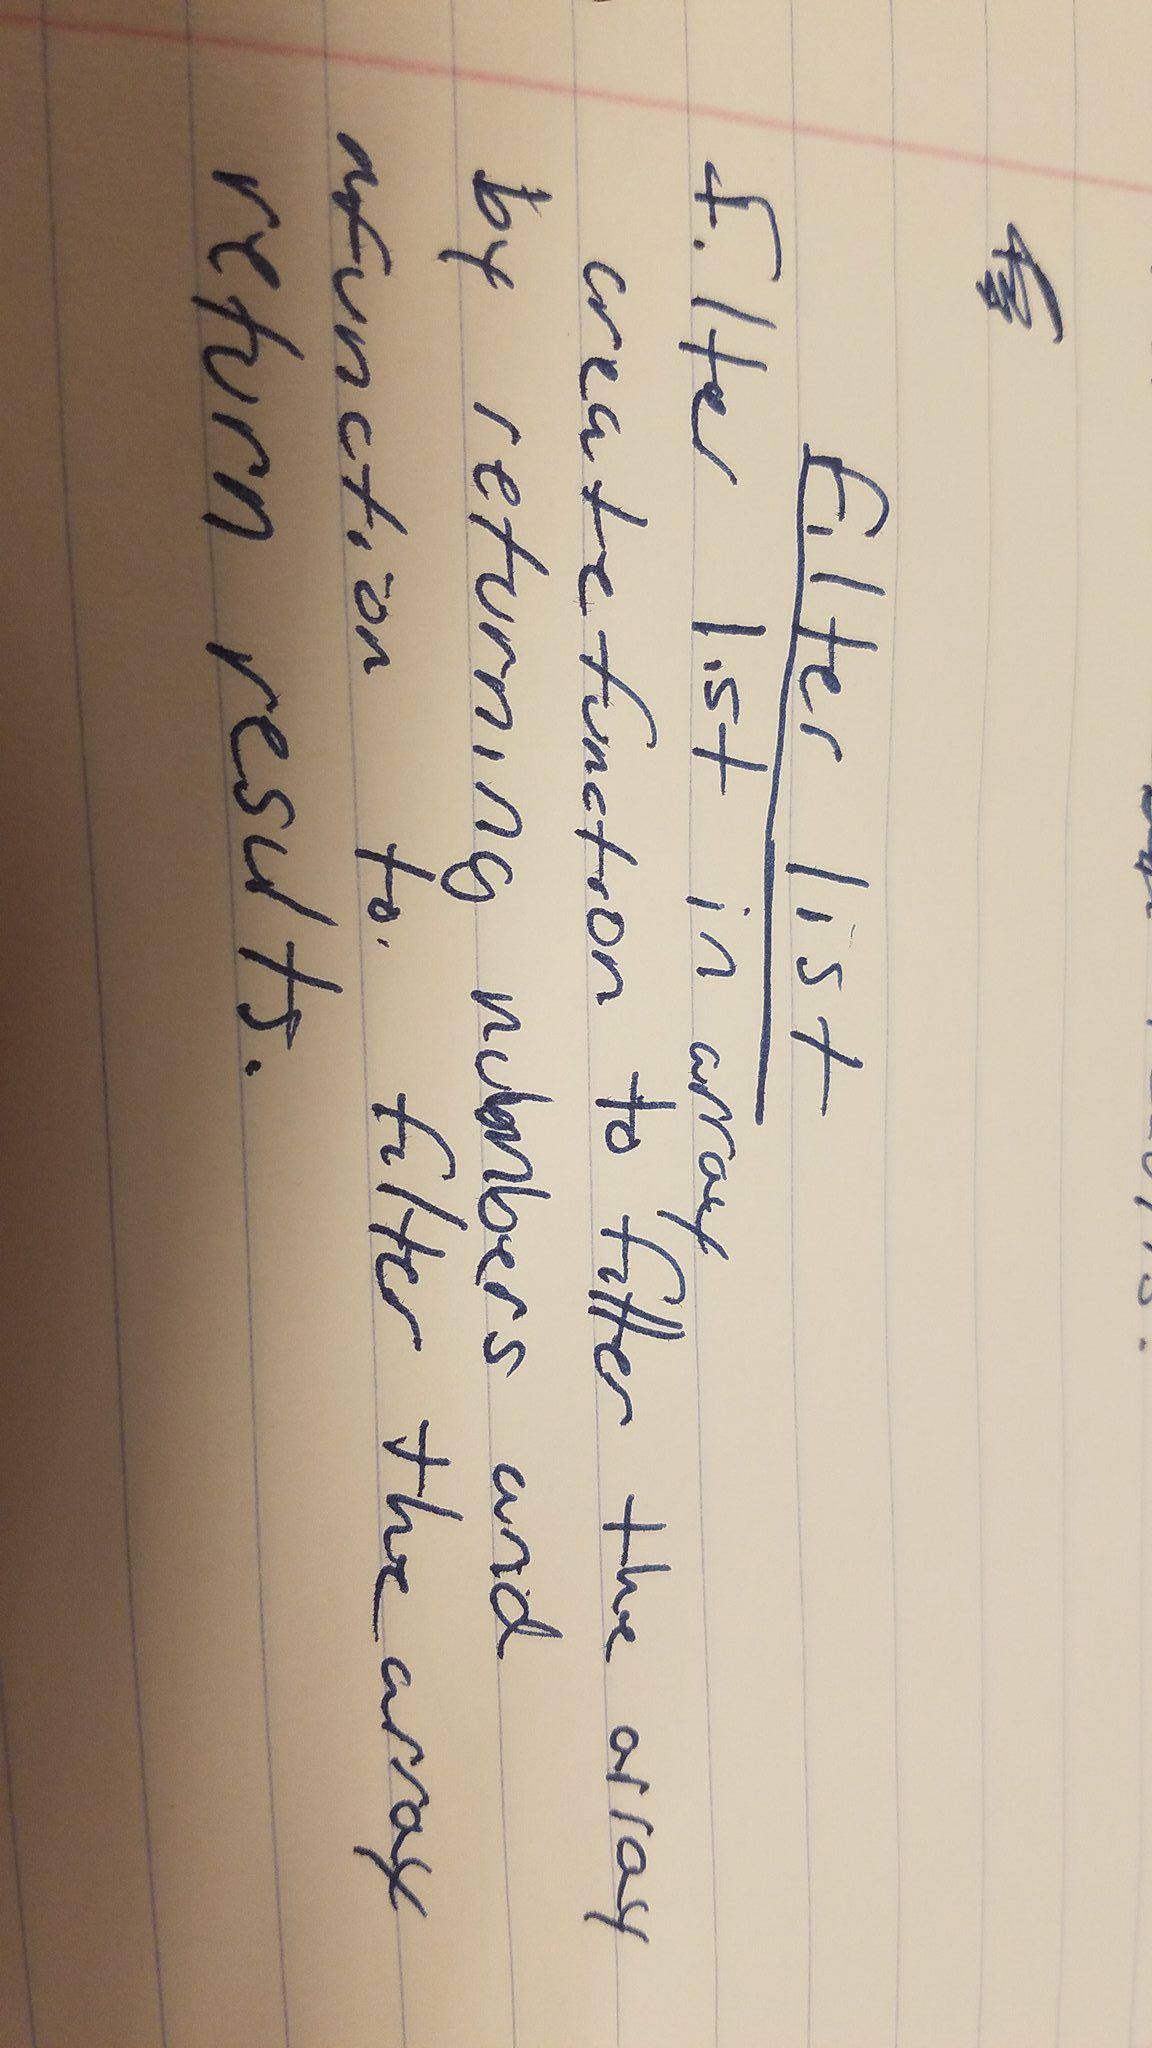 Filter list
filter list in array
create function to filter the array
by returning numbers and
function to. filter the array
return results.